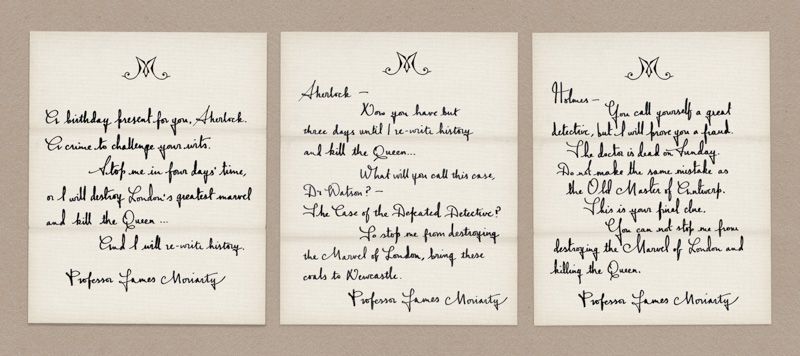 M
A birthday present for you, Sherlock.
A crime to challenge your wits.
Stop me in four days' time,
or I will destroy London's greatest marvel
and kill the Queen ...
And I will re-write history.
Professor James Moriarty
M
Sherlock –
Now you have but
three days until I re-write history
and kill the Queen...
What will you call this case,
Dr Watson? –
The Case of the Defeated Detective?
To stop me from destroying
the Marvel of London, bring these
coals to Newcastle.
Professor James Moriarty
M
Holmes –
You call yourself a great
detective, but I will prove you a fraud.
The doctor is dead on Sunday.
Do not make the same mistake as
the Old Master of Antwerp.
This is your final clue.
You can not stop me from
destroying the Marvel of London and
killing the Queen.
Professor James Moriarty